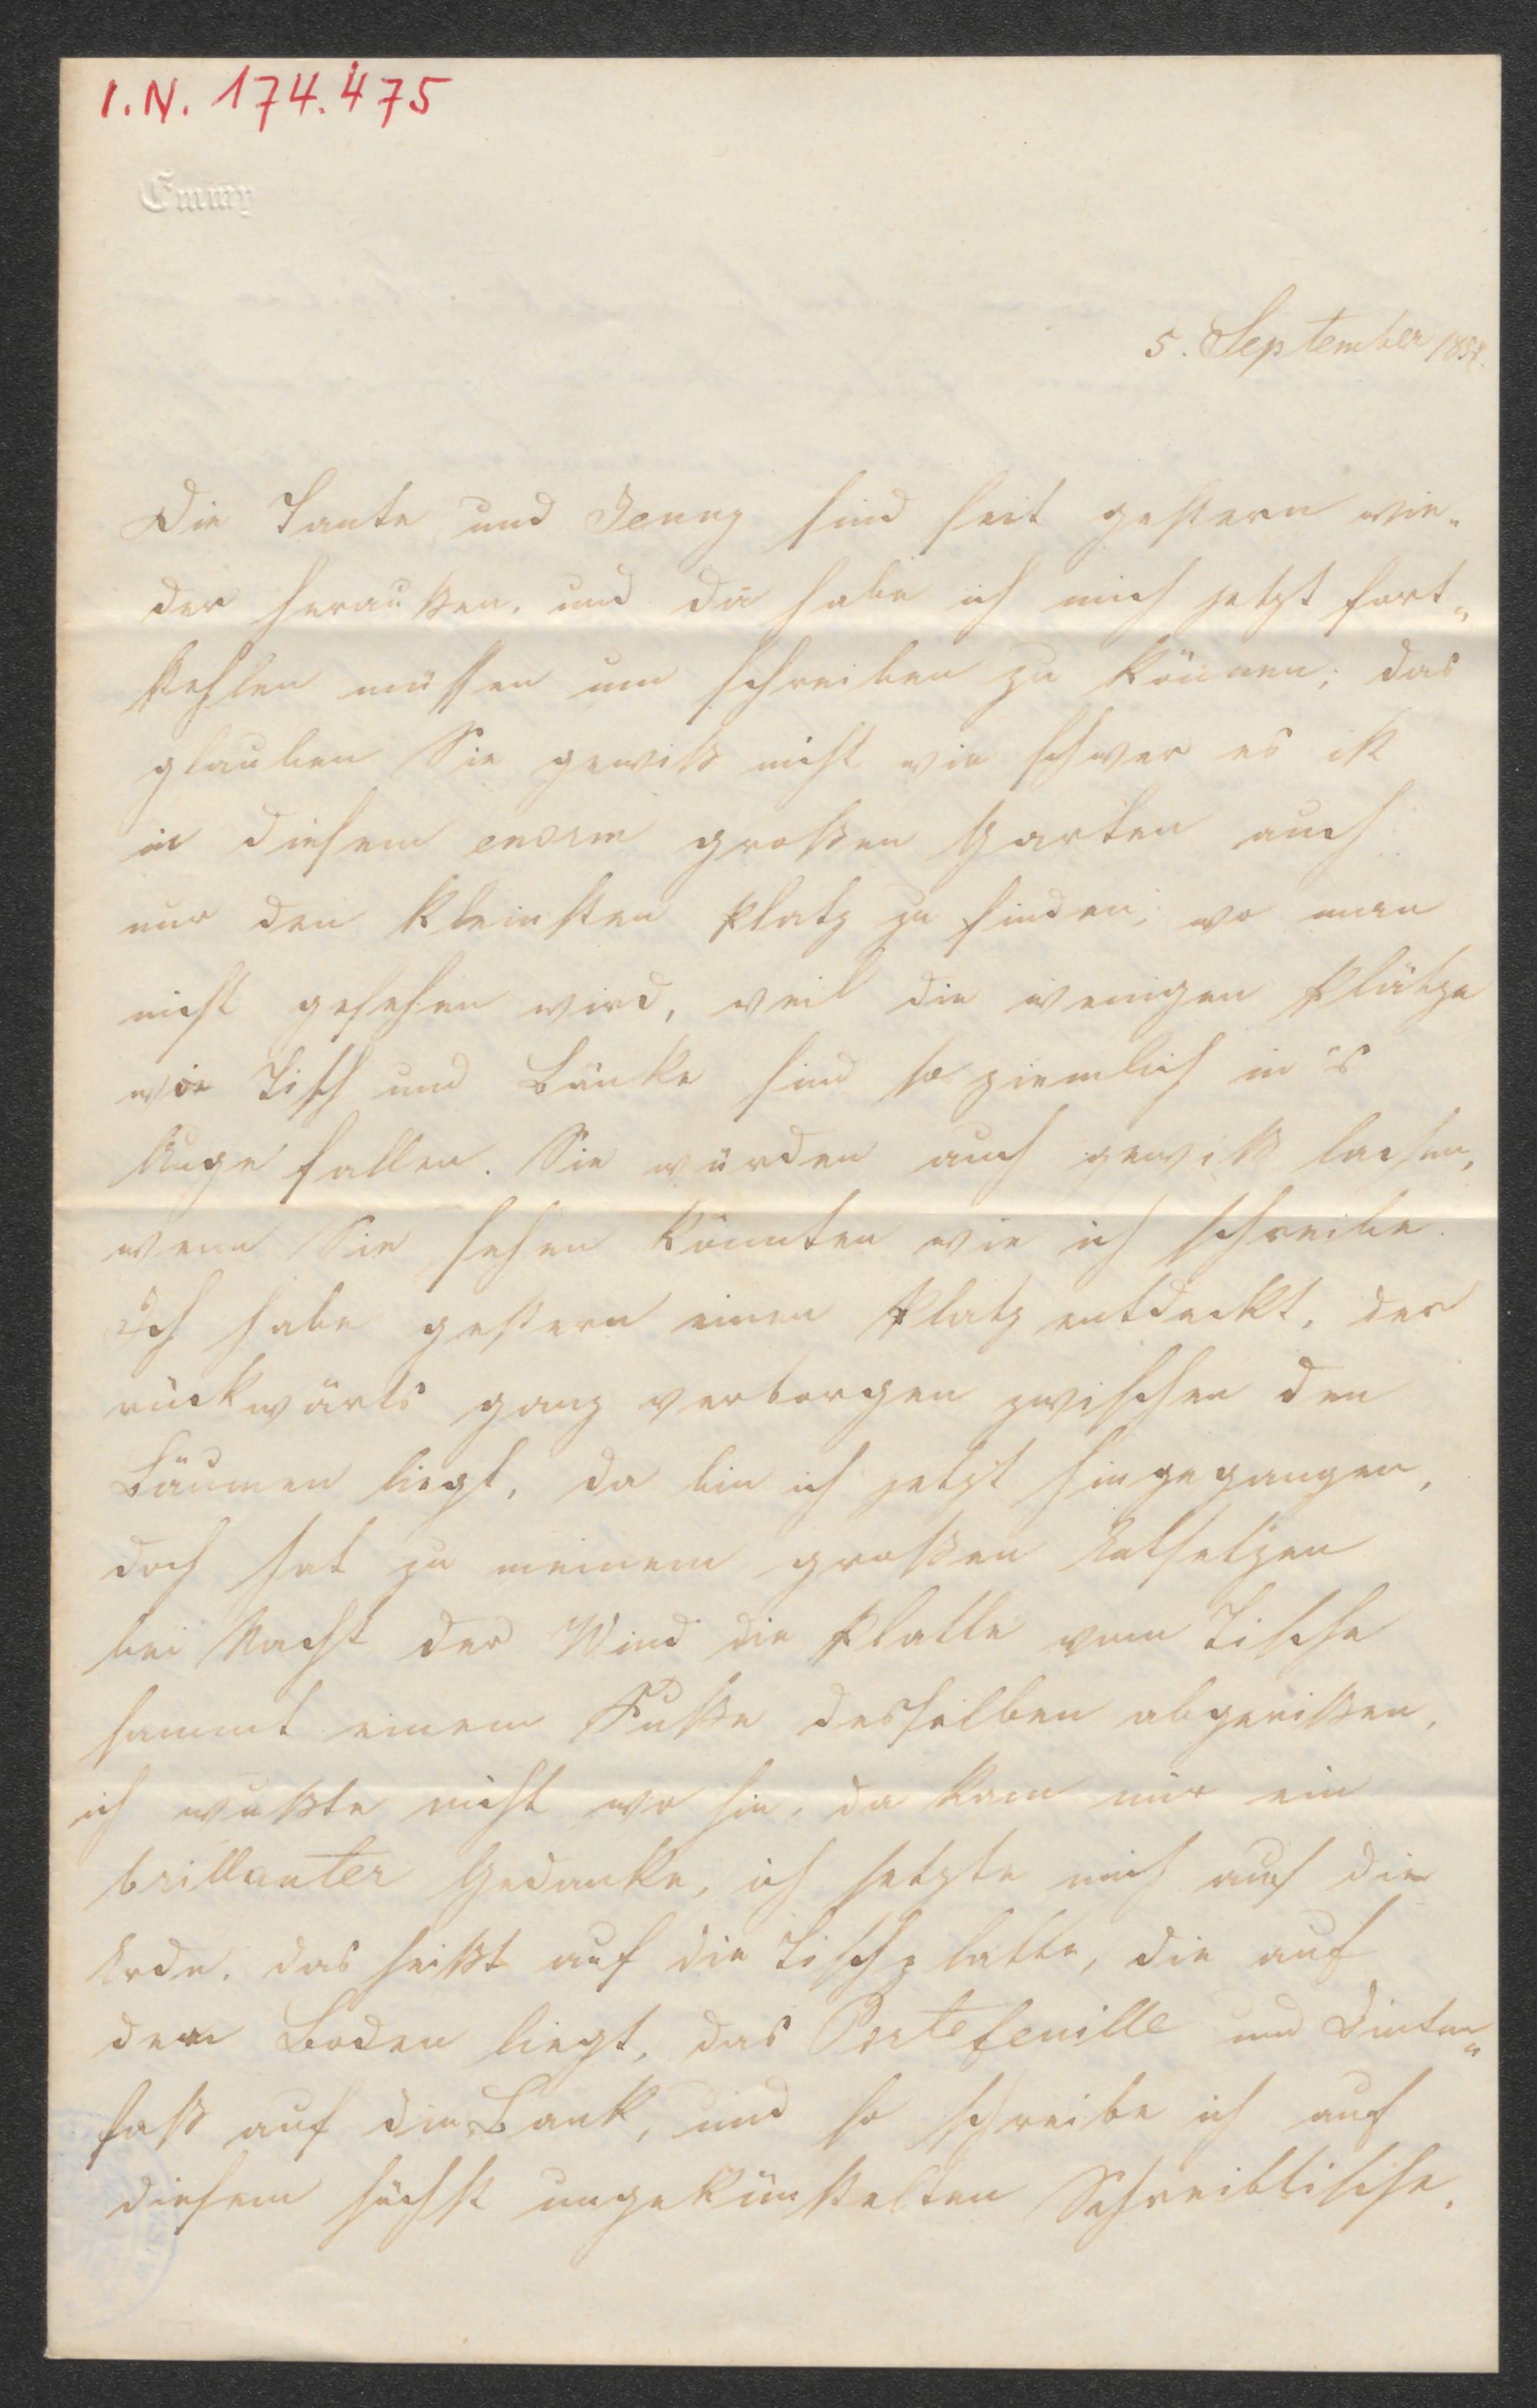 I.N. 174.475
Emmy
5. September
Die Tante und Jenny sind seit gestern wie„
der heraußen, und da habe ich mich jetzt fort„
stehlen müssen um schreiben zu können; das
glauben Sie gewiß nicht wie schwer es ist
in diesem enorm großen Garten auch
nur den kleinsten Platz zu finden, wo man
nicht gesehen wird, weil die wenigen Plätze
wo Tisch und Bänke sind so ziemlich in's
Auge fallen. Sie würden auch gewiß lachen,
wenn Sie sehen könnten wie ich schreibe.
Ich habe gestern einen Platz entdeckt, der
rückwärts ganz verborgen zwischen den
Bäumen liegt, da bin ich jetzt hingegangen,
doch hat zu meinem großen Entsetzen
bei Nacht der Wind die Platte vom Tische
sammt einem Fuße desselben abgerißen,
ich wußte nicht wo hin, da kam mir ein
brillanter Gedanke, ich setzte mich auf die
Erde, das heißt auf die Tischplatte, die auf
dem Boden liegt, das Portefeuille und Dinten„
faß auf die Bank, und so schreibe ich auf
diesem höchst ungekünstelten Schreibtische.